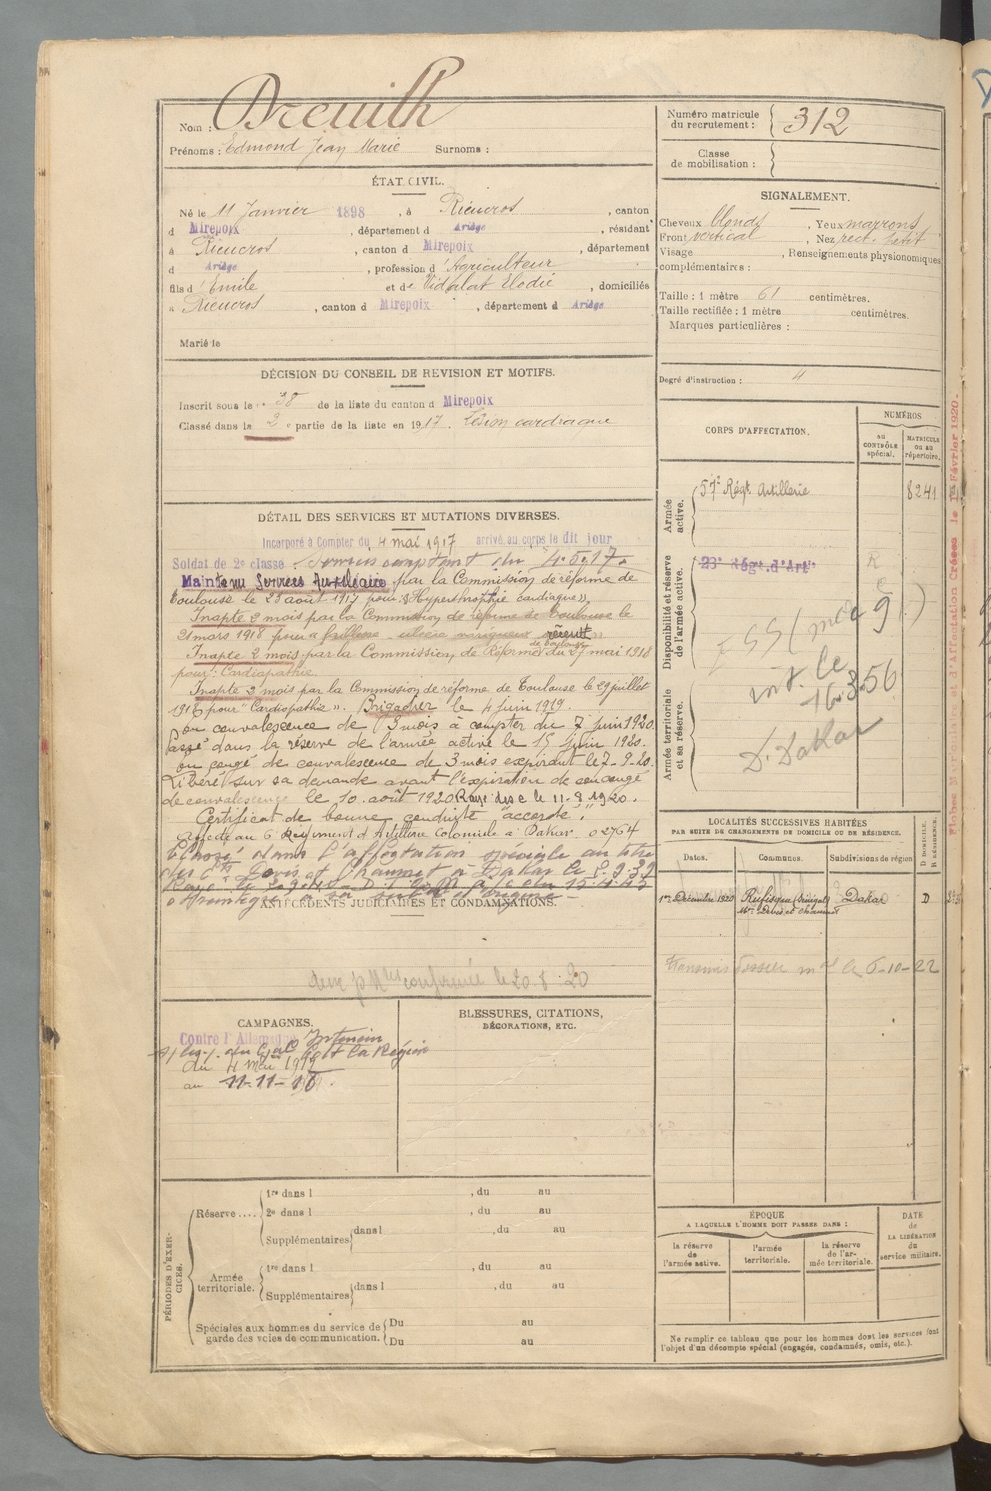 Nom : Dreuilh
Prénoms : Edmond Jean Marie Surnoms :
Numéro matricule du recrutement : 312
Classe de mobilisation :
ÉTAT CIVIL.
Né le 11 Janvier 1898, à Rieucros, canton
d Mirepoix, département d Ariège, résidant
à Rieucros, canton d Mirepoix, département
d Ariège, profession d'Agriculteur
fils d'Emile et de Vidalat Elodie, domiciliés
à Rieucros, canton d Mirepoix, département d Ariège
Marié le
SIGNALEMENT.
Cheveux blonds, Yeux marrons
Front vertical, Nez rect. petit
Visage , Renseignements physionomiques
complémentaires :
Taille : 1 mètre 61 centimètres.
Taille rectifiée : 1 mètre centimètres.
Marques particulières :
Degré d'instruction :
DÉCISION DU CONSEIL DE REVISION ET MOTIFS.
Inscrit sous le n° 38 de la liste du canton d Mirepoix
Classé dans la 2e partie de la liste en 1917. Lésion cardiaque
DÉTAIL DES SERVICES ET MUTATIONS DIVERSES.
Incorporé à Compter du 4 mai 1917 arrivé au corps le dit jour
Soldat de 2e classe. Services comptant du 4.5.17.
Maintenu Services Auxiliaire par la Commission de réforme de
Toulouse le 23 août 1917 pour "Hypertrophie cardiaque",
Inapte 2 mois par la Commission de réforme de Toulouse le
21 mars 1918 pour
Inapte 2 mois par la Commission de Réforme de Toulouse du 27 mai 1918
pour : Cardiopathie.
Inapte 2 mois par la Commission de réforme de Toulouse le 29 juillet
1918 pour "Cardiopathie". Brigadier le 4 juin 1919.
En convalescence de 3 mois à compter du 7 juin 1920.
Passé dans la réserve de l'armée active le 15 juin 1920.
en congé de convalescence de 3 mois expirant le 7-9-20.
Libéré sur sa demande avant l'expiration de son congé
de convalescence le 10 août 1920. Rayé des c le 11-8-1920.
Certificat de bonne conduite "accordé".
Affecté au 6 Régiment d'Artillerie Coloniale à Dakar. 02764
Classé dans l'affectation spéciale au titre
des Ets Devès et Chaumet à Dakar le
ANTÉCÉDENTS JUDICIAIRES ET CONDAMNATIONS.
confirmée le 20.8.20
CORPS D'AFFECTATION.
NUMÉROS
au CONTRÔLE spécial.
MATRICULE ou au répertoire.
Armée active.
57e Régt Artillerie 8241
Disponibilité et réserve de l'armée active.
23e Régt. d'Artie
Armée territoriale et sa réserve.
16.3.56
D. Dakar
LOCALITÉS SUCCESSIVES HABITÉES
PAR SUITE DE CHANGEMENTS DE DOMICILE OU DE RÉSIDENCE.
Dates. Communes. Subdivisions de région
D DOMICILE. R RÉSIDENCE.
1er Décembre 1920 Rufisque (Sénégal) Dakar D
Mon Devès et Chaumet
transmis dossier le 6-10-22
CAMPAGNES.
Contre l'Allemagne Intérieur
du 4 mai 1917
au 11-11-18.
BLESSURES, CITATIONS,
DÉCORATIONS, ETC.
PÉRIODES D'EXERCICES.
Réserve....
1re dans l , du au
2e dans l , du au
Supplémentaires dans l , du au
Armée territoriale.
1re dans l , du au
Supplémentaires dans l , du au
Spéciales aux hommes du service de garde des voies de communication.
Du au
Du au
ÉPOQUE
A LAQUELLE L'HOMME DOIT PASSER DANS :
la réserve de l'armée active.
l'armée territoriale.
la réserve de l'armée territoriale.
DATE de LA LIBÉRATION du service militaire.
Ne remplir ce tableau que pour les hommes dont les services font
l'objet d'un décompte spécial (engagés, condamnés, omis, etc.).
Fiches Matriculaire et d'Affectation Créées le 1er Février 1920.